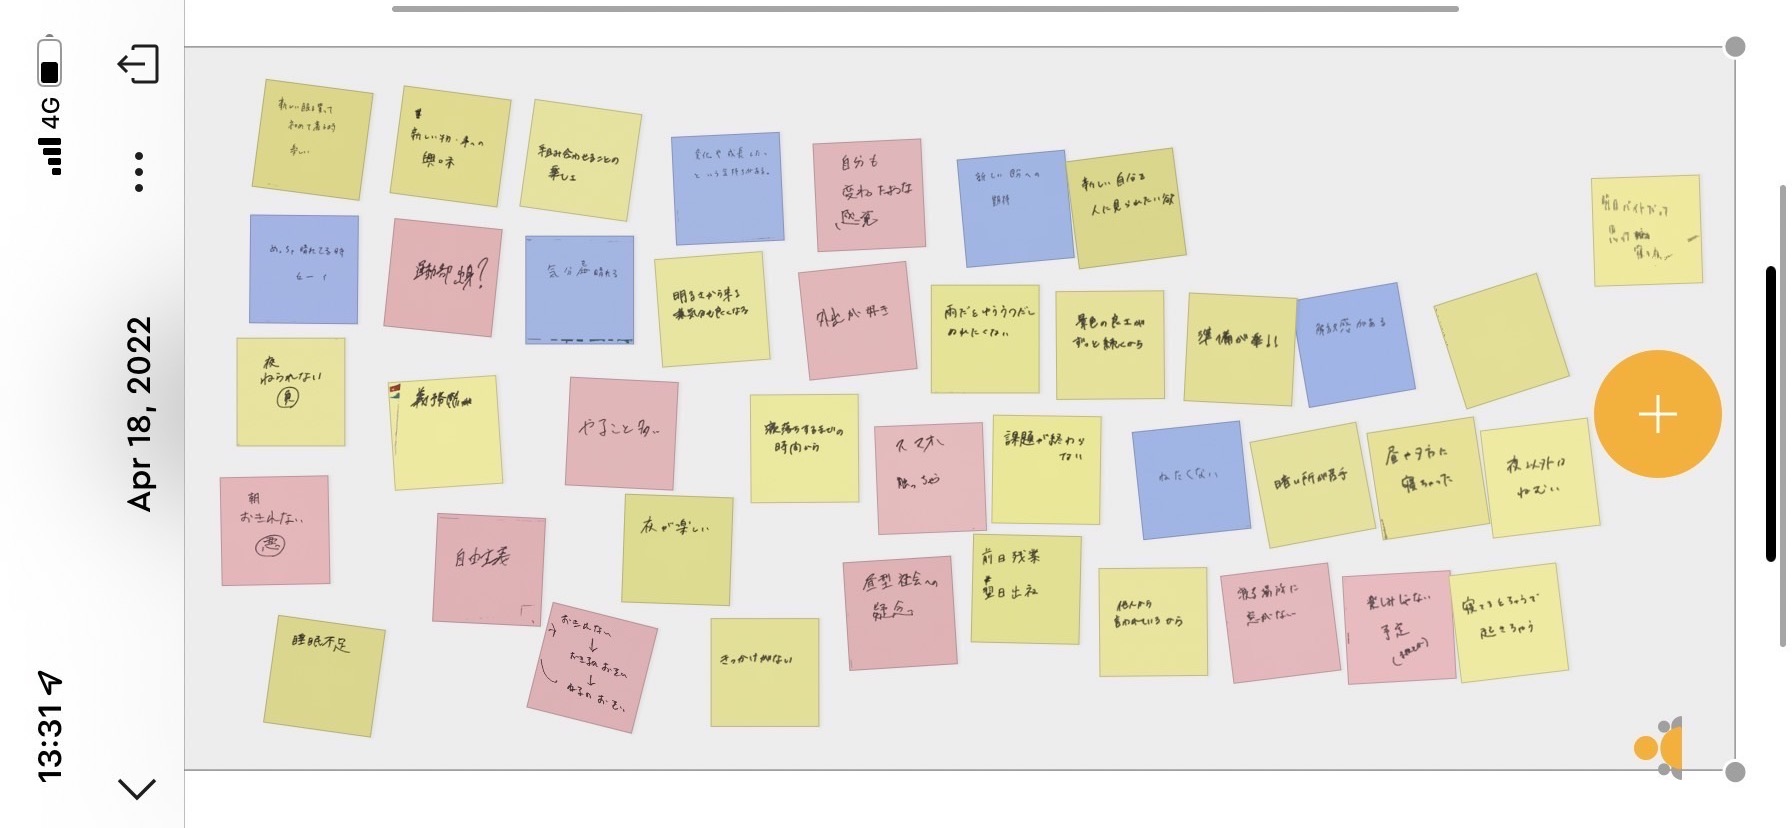 13:31
4G
Apr 18, 2022
新しい服を買って
初めて着る時
楽しい
新しい物・事への
興味
組み合わせることの
楽しさ
変化や成長したい
という気持ちがある。
自分も
変われたような
感覚
新しい自分への
期待
新しい自分を
人に見られたい欲
明日バイトだって
めっちゃ晴れてる時
気分が晴れる
明るさから来る
気分も良くなる
外出が好き
雨だとゆううつだし
ぬれたくない
景色の良さが
ずっと続くから
準備が楽しい
解放感がある
夜
ねられない
義務感
やること多い
寝落ちするまでの
時間から
スマホ
触っちゃう
課題が終わら
ない
ねたくない
暗い所が苦手
昼や夕方に
寝ちゃった
夜以外は
ねむい
朝
おきれない
悪
自由主義
夜が楽しい
昼型社会への
疑念
前日残業
翌日出社
他人から
言われているから
寝る場所に
窓がない
楽しみじゃない
予定
寝てもとちゅうで
起きちゃう
睡眠不足
おきれない
↓
おきるの おそい
↓
ねるの おそい
きっかけがない